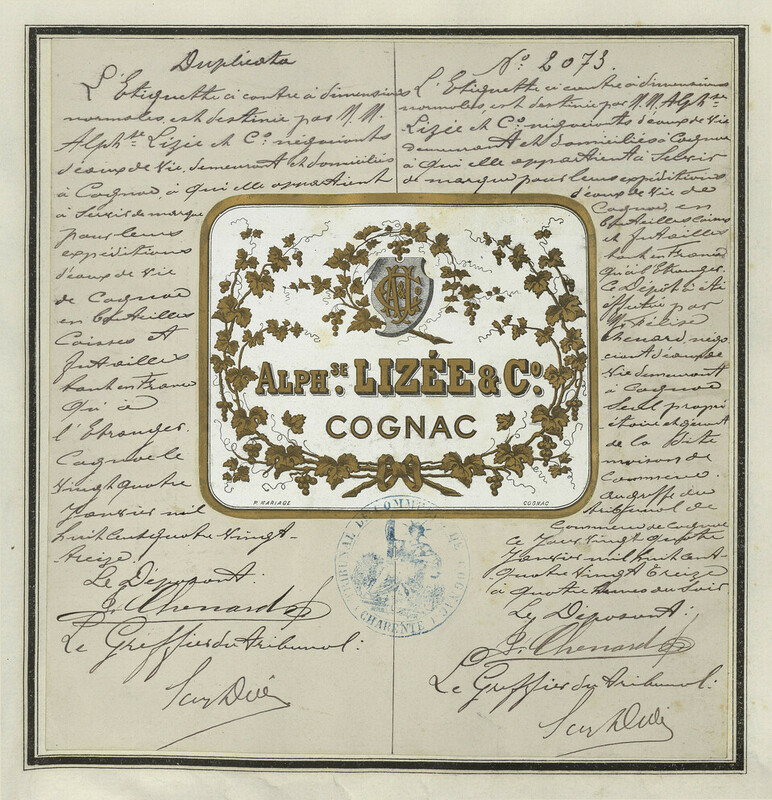 Duplicata
L'Etiquette ci contre à dimensions
normales, est destinée par M.M.
Alphse Lizée et Co négociants
d'eaux de Vie, demeurant et domiciliés
à Cognac, à qui elle appartient
à Servir de marque
pour leurs
expéditions
d'eaux de Vie
de Cognac
en bouteilles
Caisses et
futailles
tant en France
qu'à
l'Etranger.
Cognac le
Vingt quatre
Janvier mil
huit cent quatre vingt
treize.
Le Déposant:
Chenard
Le Greffier du tribunal:
No 2073.
L'Etiquette ci contre à dimensions
normales, est destinée par M.M. Alphse
Lizée et Co négociants d'eaux de Vie
demeurant et domiciliés à Cognac
à qui elle appartient à Servir
de marque pour leurs expéditions
d'eaux de Vie de
Cognac, en
bouteilles Caisses
et futailles
tant en France
qu'à l'Etranger.
Ce Dépôt a été
effectué par
Chenard, négo
ciant d'eaux de
Vie demeurant
à Cognac
Seul propri
étaire et gérant
de la dite
maison de
Commerce.
au greffe du
tribunal de
Commerce de Cognac
ce Jour Vingt quatre
Janvier mil huit cent
quatre vingt treize
à quatre heures du Soir
Le Déposant:
Chenard
Le Greffier du tribunal:
ALPHSE. LIZÉE & CO.
COGNAC
P. MARIAGE
COGNAC
TRIBUNAL DE COMMERCE DE COGNAC
CHARENTE